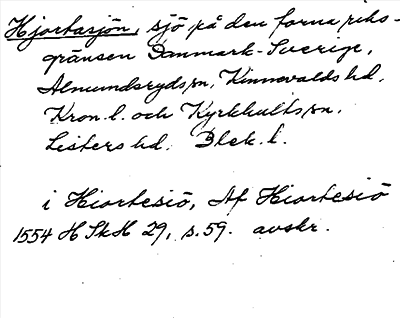 Hjortasjön, sjö på den forna riks-
gränsen Danmark-Sverige,
Almundsrydssn, Kinnevalds hd,
Kron.l. och Kyrkhultssn,
Listers hd, Blek.l.
i Hiortesiö, Af Hiortesiö
1554 HSkH 29, s.59. avskr.